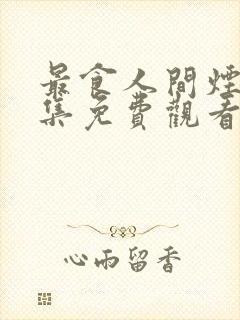 最食人間煙
集免費觀看
心雨留香